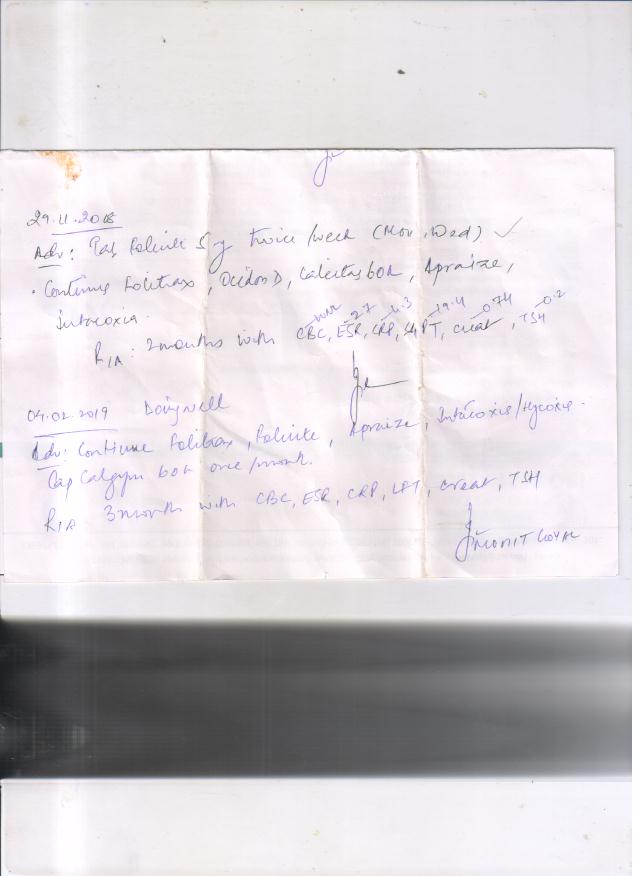 29.11.2018
Adv: Tab Folinite 5 g twice/week (Mon, Wed) ✓
. Continue Folitrax, Ocidon D, Calcitas 60k, Apraize,
Intacoxia.
27 4.3 19.4 0.74 0.2
R/A: 2 months with CBC, ESR, CRP, SGPT, Creat, TSH
04.02.2019 Doing well
Adv: Continue Folitrax, Folinite, Apraize, Intacoxia/Hycoxia.
Cap 60k one/month.
R/A 3 months with CBC, ESR, CRP, LFT, Creat, TSH
MOHIT GOYAL